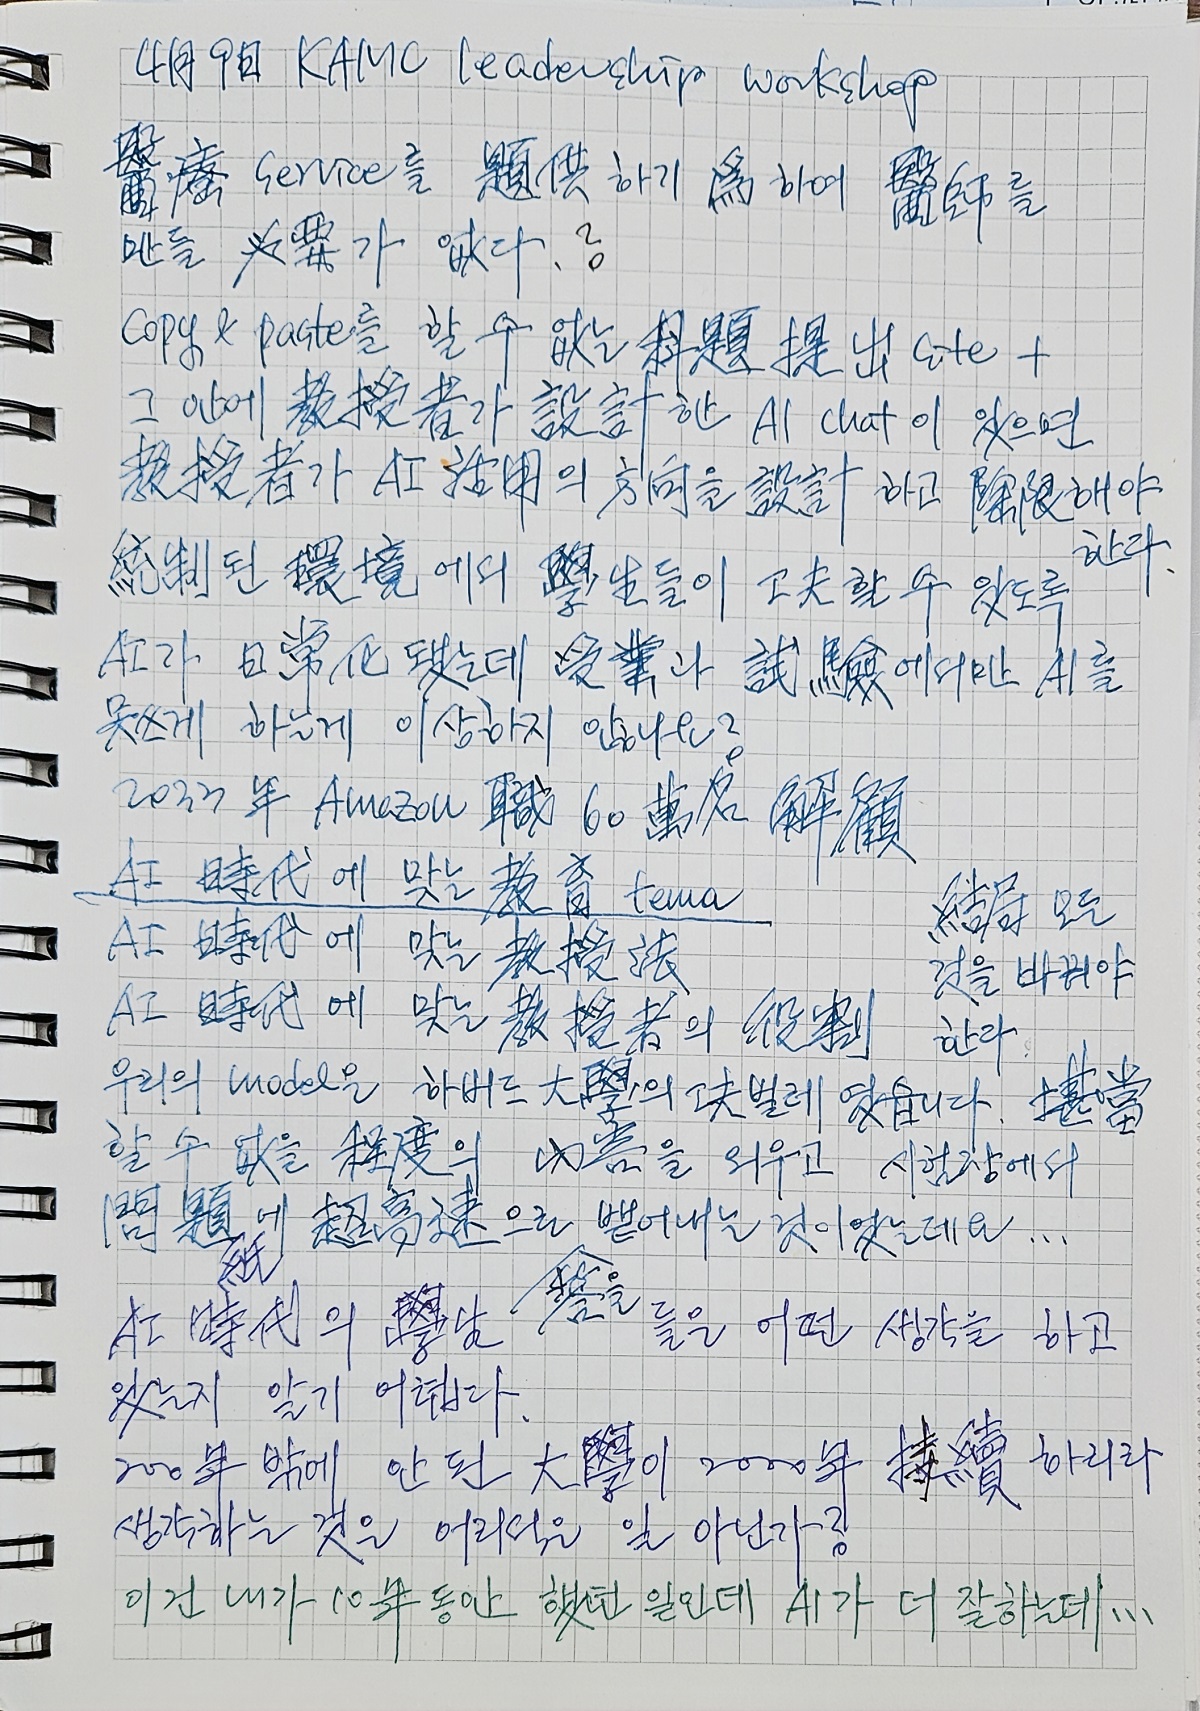 4月 9日 KAMC leadership workshop
醫療 service를 題供하기 爲하여 醫師를
만들 必要가 없다.?
Copy & paste를 할 수 없는 科題 提出 site +
그 안에 教授者가 設計한 AI chat이 있으면
教授者가 AI 活用의 方向을 設計 하고 除限해야
한다.
統制된 環境에서 學生들이 工夫할 수 있도록
AI가 日常化 됐는데 受業과 試驗에서만 AI를
못쓰게 하는게 이상하지 않나요?
2033年 Amazon 職 60萬名 解顧
AI 時代에 맞는 教育 tema
AI 時代에 맞는 教授法
AI 時代에 맞는 教授者의 役割
結局 모든
것을 바꿔야
한다.
우리의 model은 하버드 大學의 工夫벌레 였습니다. 堪當
할 수 없을 程度의 內容을 외우고 시험장에서
問題에 超高速으로 뱉어내는 것이었는데요...
紙
答을
AI 時代의 學生들은 어떤 생각을 하고
있는지 알기 어렵다.
200年 밖에 안 된 大學이 2000年 持續 하리라
생각하는 것은 어리석은 일 아닌가?
이건 내가 10年 동안 했던 일인데 AI가 더 잘하는데...